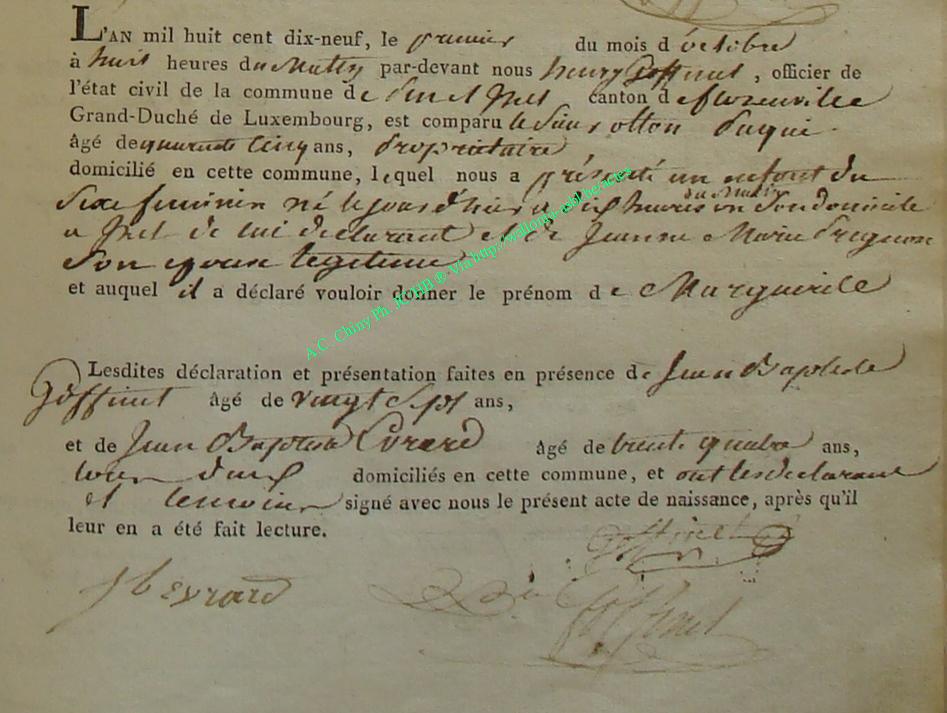 L'AN mil huit cent dix-neuf, le premier du mois d'octobre
à huit heures du Matin par-devant nous henry Goffinet, officier de
l'état civil de la commune de canton de florenville
Grand-Duché de Luxembourg, est comparu le Sieur
âgé de quarante cinq ans, propriétaire
domicilié en cette commune, lequel nous a présenté un enfant du
Sexe feminin né le jour d'hier a dix heures du Matin en son domicile
a de lui déclarant et de Jeanne Marie
Son epouse legitime
et auquel il a déclaré vouloir donner le prénom de Marguerite
Lesdites déclaration et présentation faites en présence de Jean Baptiste
Goffinet âgé de vingt Sept ans,
et de Jean Baptiste Evrard âgé de trente quatre ans,
tous deux domiciliés en cette commune, et ont les declarant
et temoins signé avec nous le présent acte de naissance, après qu'il
leur en a été fait lecture.
Goffinet
J b Evrard
Goffinet
A.C. Chiny Ph. ® Via http://wallonia-asbl.be/actes